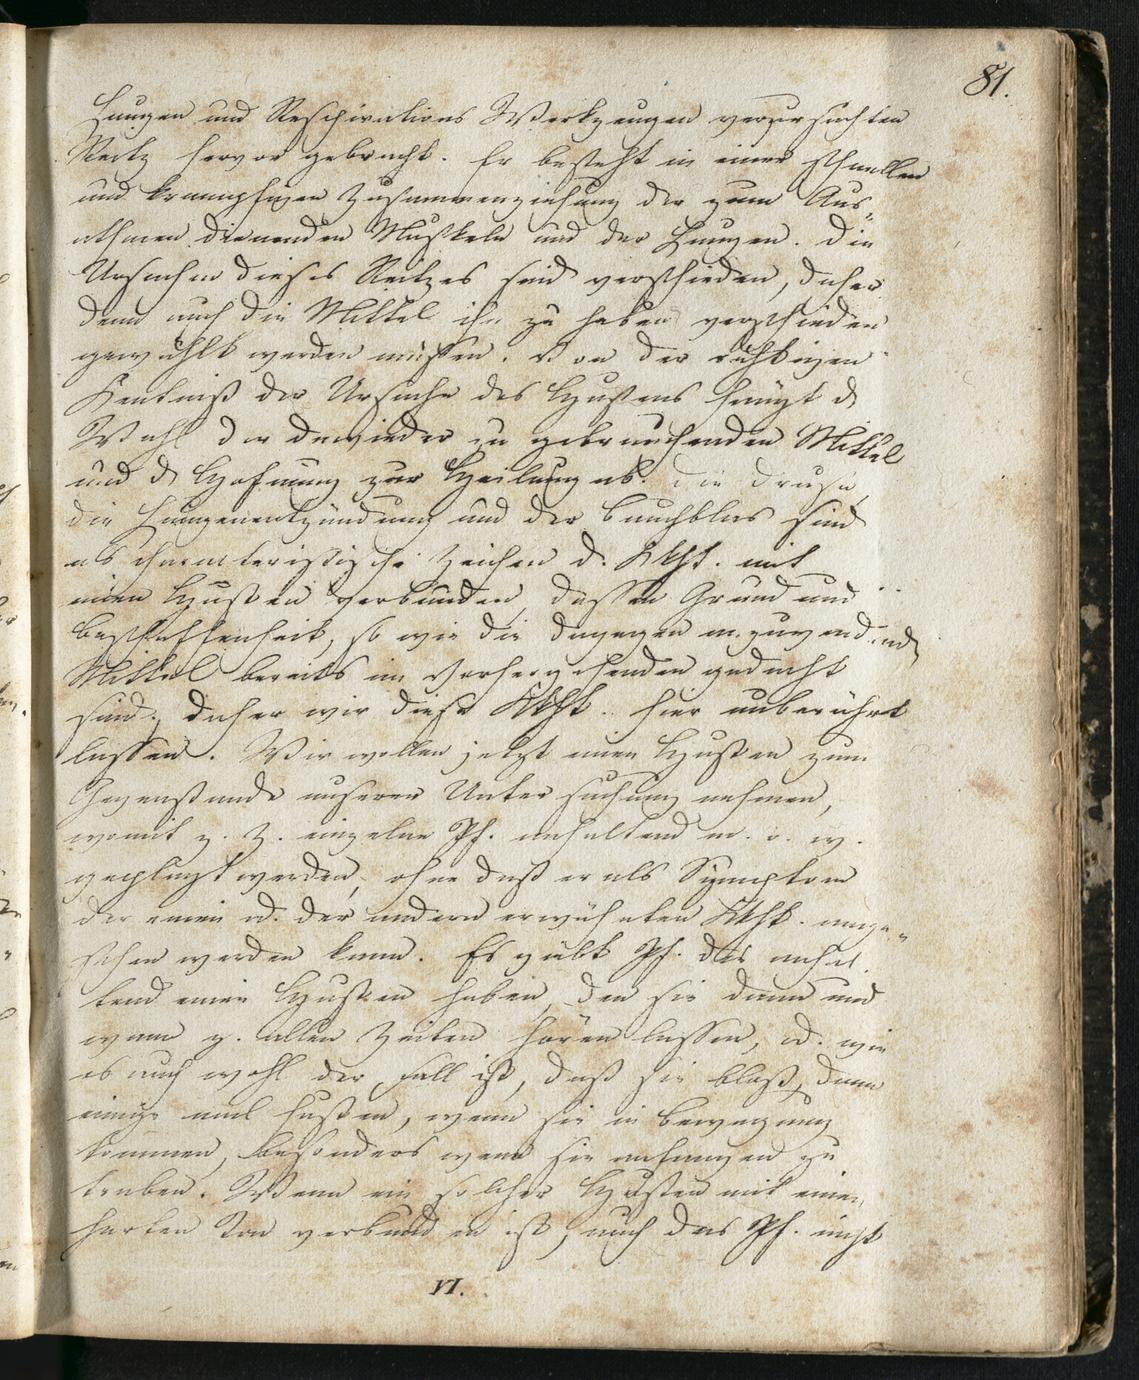 81.
Lungen und Respirations Werkzeugen verursachten
Reitz hervor gebracht. Er besteht in einer schnellen
und krampfigen Zusammenziehung der zum Aus„
athmen dienenden Muskeln und der Lungen. Die
Ursachen dieses Reitzes sind verschieden, daher
denn auch die Mittel ihn zu heben verschieden
gewählt werden müssen. Von der richtigen
Kentniß der Ursache des Hustens hängt d
Wahl der dawieder zu gebrauchenden Mittel
und d Hofnung zur Heilung ab. die Druse,
die Lungenentzündung und der Bauchblas sind
als characteristische Zeichen d. Kkht. mit
einen Husten verbunden, dessen Grund und
Beschaffenheit, so wie die dagegen anzuwendend
Mittel bereits im Vorhergehenden gedacht
sind; daher wir diese Kkht. hier unberührt
lassen. Wir wollen jetzt einen Husten zum
Gegenstande unserer Untersuchung nehmen,
womit z. Z. einzelne Pf. anhaltend m. o. w.
geplagt werden, ohne daß er als Symptom
der einen od. der andern erwähnten Kkht. ange„
sehen werden kann. Es giebt Pf. die anhal
tend einen Husten haben, den sie dann und
wann z. allen Zeiten hören lassen, od. wie
es auch wohl der Fall ist, daß sie bloß dann
einige mal husten, wenn sie in Bewegung
kommen, besonders wenn sie anfangen zu
traben. Wenn ein solcher Husten mit einen
harten Ton verbunden ist, auch das Pf. nicht
VI.